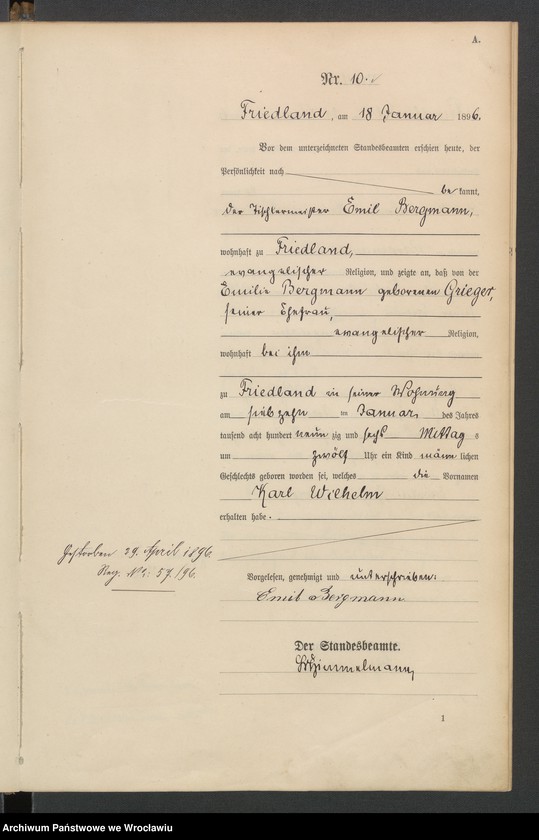 A.
Nr. 10.
Friedland, am 18 Januar 1896.
Vor dem unterzeichneten Standesbeamten erschien heute, der
Persönlichkeit nach
be kannt,
der Tischlermeister Emil Bergmann,
wohnhaft zu Friedland,
evangelischer Religion, und zeigte an, daß von der
Emilie Bergmann geborenen Grieger,
seiner Ehefrau,
evangelischer Religion,
wohnhaft bei ihm
zu Friedland in seiner Wohnung
am siebzehn ten Januar des Jahres
tausend acht hundert neun zig und sechs Mittag s
um zwölf Uhr ein Kind männ lichen
Geschlechts geboren worden sei, welches die Vornamen
Karl Wilhelm
erhalten habe.
Gestorben 29. April 1896.
Reg. No: 57./96.
Vorgelesen, genehmigt und unterschrieben:
Emil Bergmann
Der Standesbeamte.
1
Archiwum Państwowe we Wrocławiu